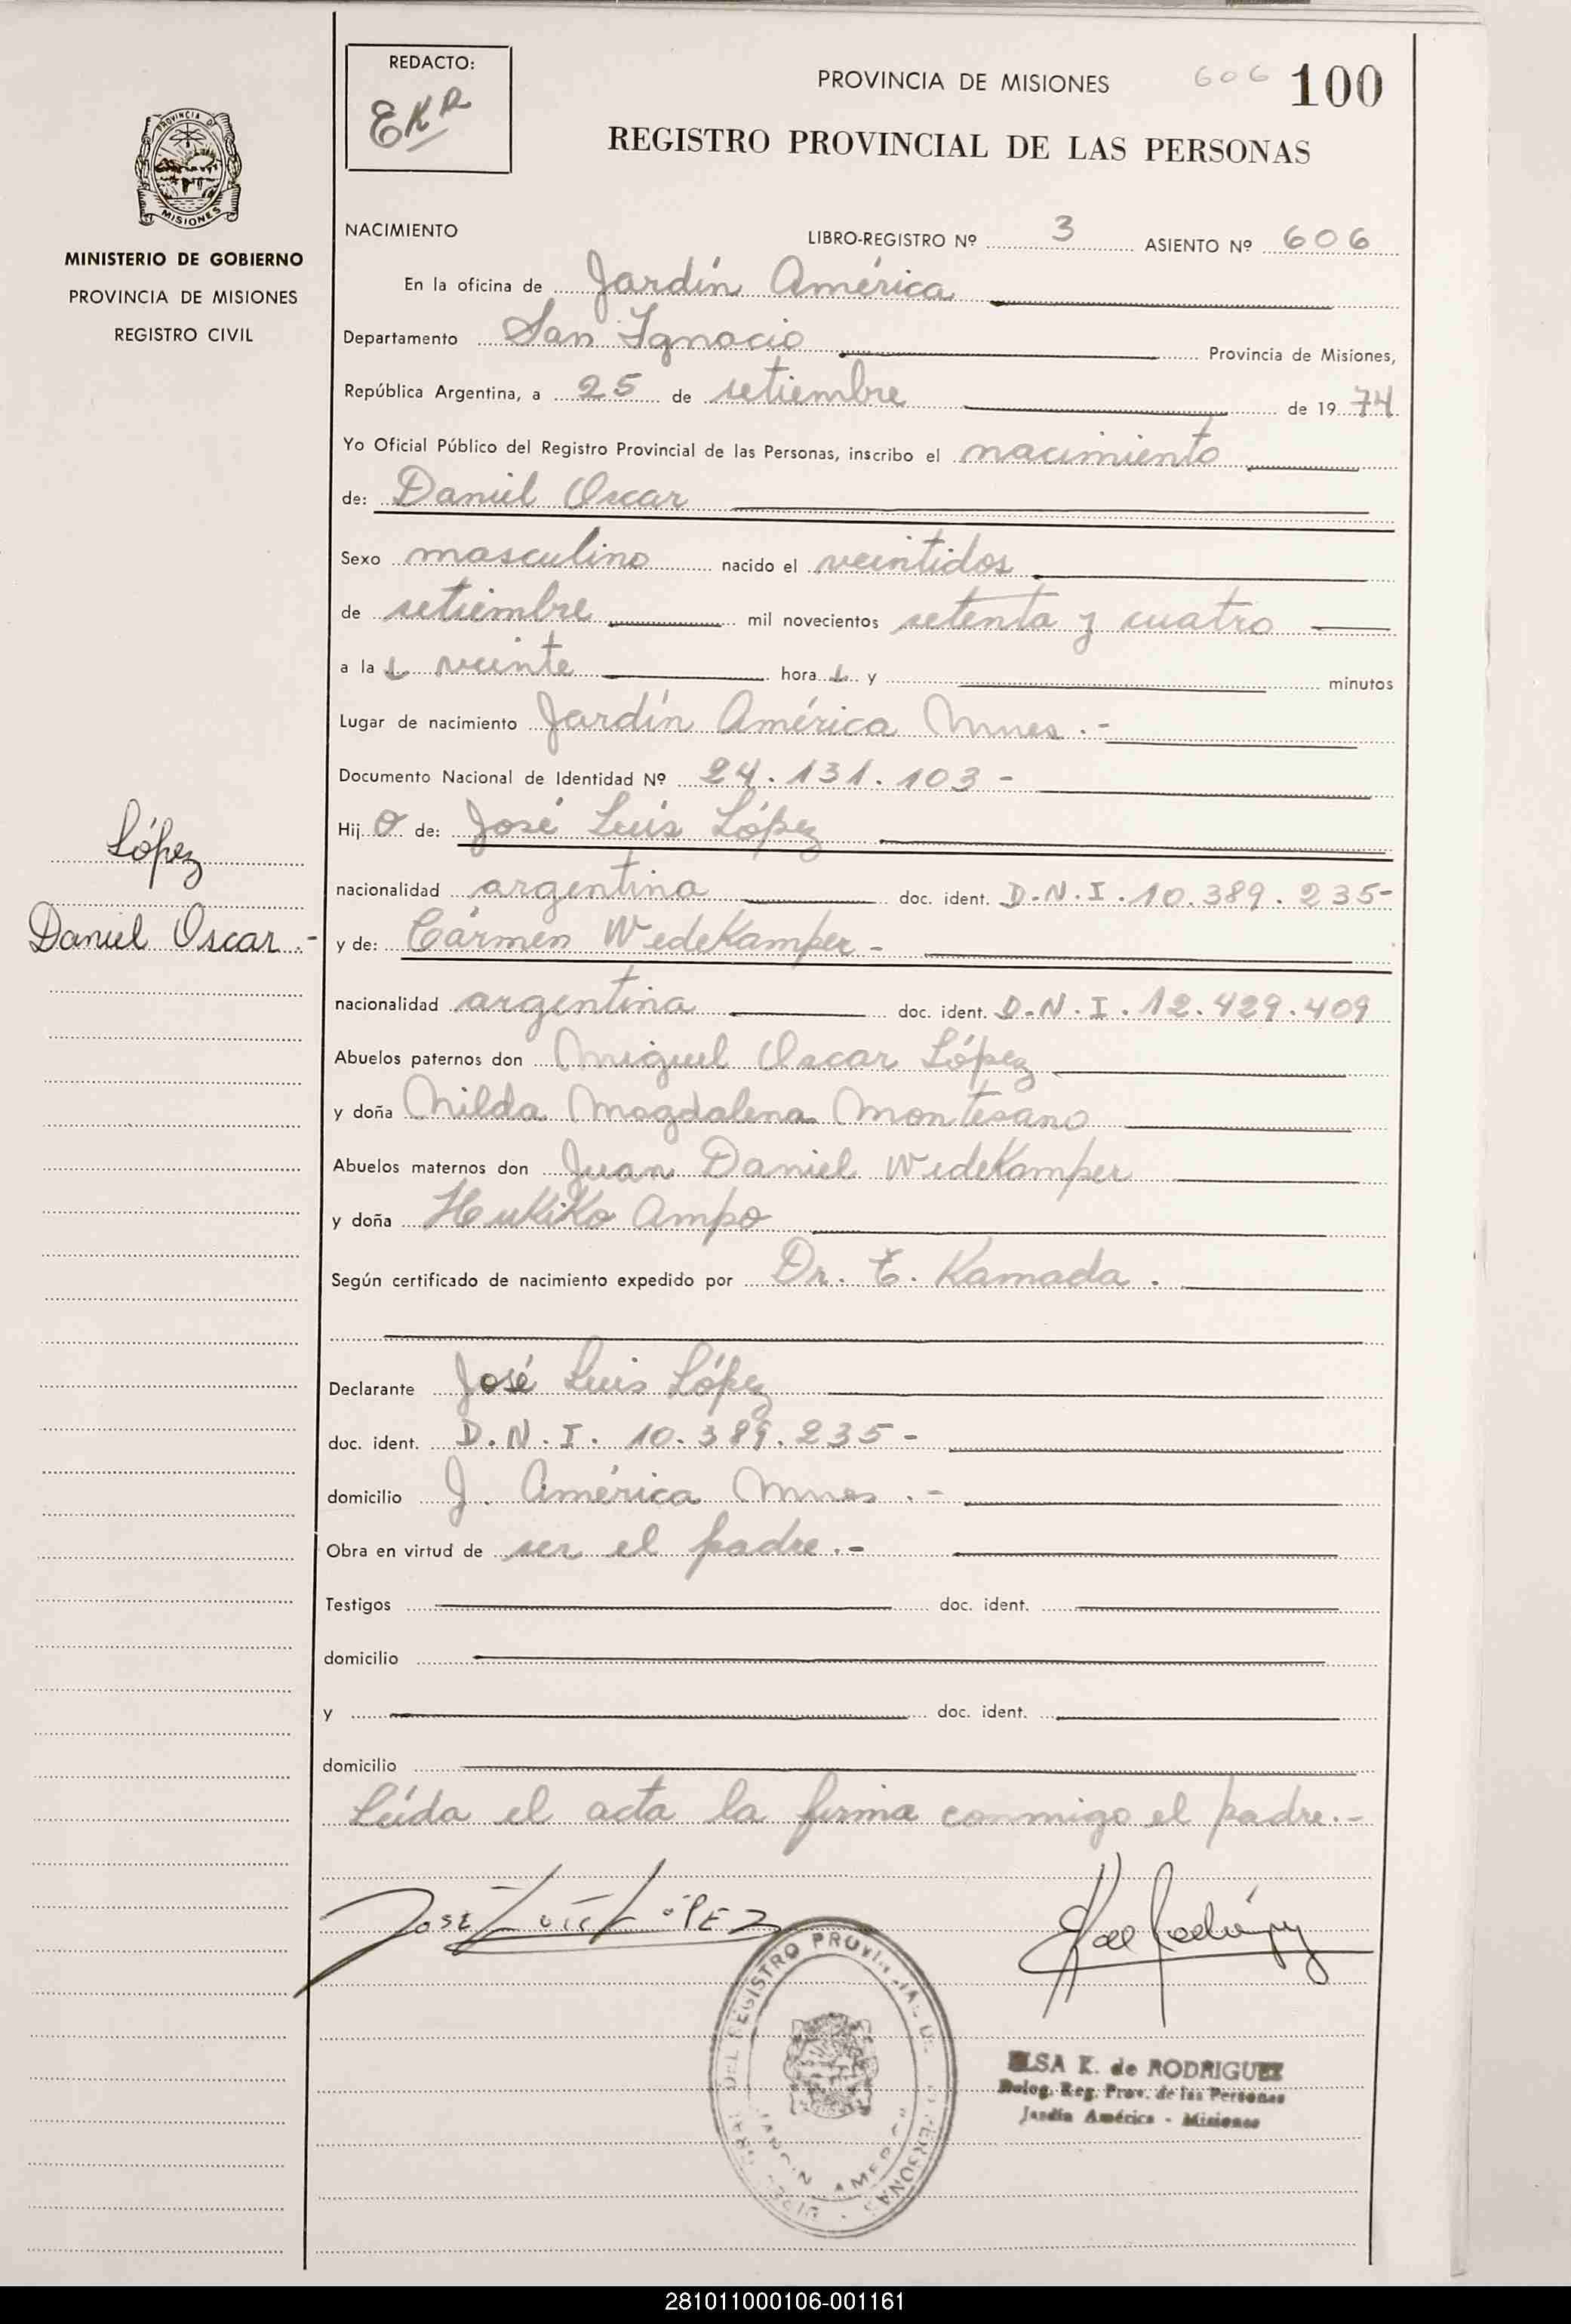 REDACTO:
EKR
PROVINCIA DE MISIONES 606 100
REGISTRO PROVINCIAL DE LAS PERSONAS
PROVINCIA DE
MISIONES
MINISTERIO DE GOBIERNO
PROVINCIA DE MISIONES
REGISTRO CIVIL
López
Daniel Oscar.-
NACIMIENTO LIBRO-REGISTRO Nº 3 ASIENTO Nº 606
En la oficina de Jardín América
Departamento San Ignacio Provincia de Misiones,
República Argentina, a 25 de setiembre de 19 74
Yo Oficial Público del Registro Provincial de las Personas, inscribo el nacimiento
de: Daniel Oscar
Sexo masculino nacido el veintidos
de setiembre mil novecientos setenta y cuatro
a la s veinte hora s y minutos
Lugar de nacimiento Jardín América Mnes.-
Documento Nacional de Identidad Nº 24.131.103-
Hij o de: José Luis López
nacionalidad argentina doc. ident. D.N.I.10.389.235-
y de: Cármen Wedekamper-
nacionalidad argentina doc. ident. D.N.I.12.429.409
Abuelos paternos don Miguel Oscar López
y doña Nilda Magdalena Montesano
Abuelos maternos don Juan Daniel Wedekamper
y doña Heukiko Ampo
Según certificado de nacimiento expedido por Dr. E. Kamada.
Declarante José Luis López
doc. ident. D.N.I. 10.389.235-
domicilio J. América Mnes.-
Obra en virtud de ser el padre.-
Testigos doc. ident.
domicilio
y doc. ident.
domicilio
Leída el acta la firma conmigo el padre.-
JOSÉ LUIS LÓPEZ
ELSA K. de RODRIGUEZ
Deleg. Reg. Prov. de las Personas
Jardín América - Misiones
281011000106-001161